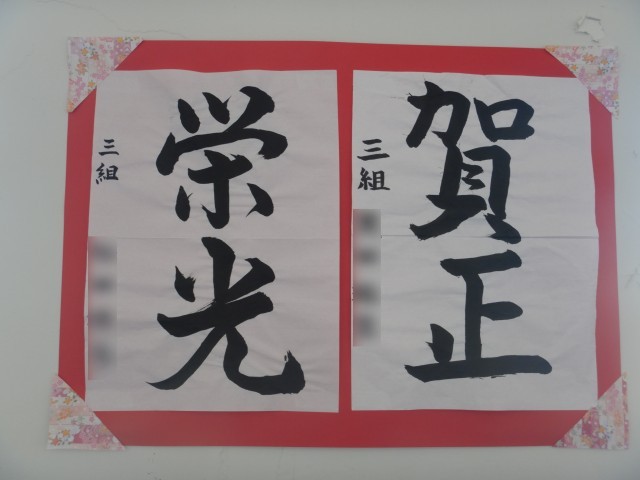 賀正
三組
栄光
三組